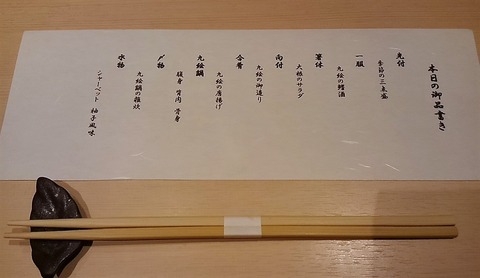 本日の御品書き
先付
季節の三点盛
一服
九絵の鰭酒
箸休
大根のサラダ
向付
九絵の御造り
合肴
九絵の唐揚げ
九絵鍋
腹身 背肉 骨身
〆物
九絵鍋の雑炊
水物
シャーベット 柚子風味